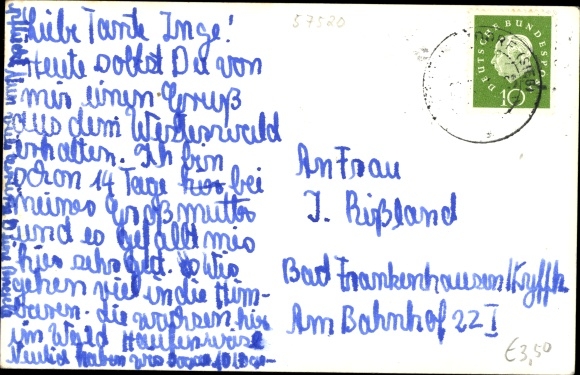 Liebe Tante Inge!
Heute sollst Du von
mir einen Gruß
aus dem Westerwald
erhalten. Ich bin
schon 14 Tage hier bei
meiner Großmutter
und es gefällt mir
hier sehr gut. Wir
gehen viel in die Him-
beeren. die wachsen hier
im Wald Haufenweise
Neulich haben wir sogar
57520
DEUTSCHE BUNDESPOST
10
An Frau
I. Rißland
Bad Frankenhausen/Kyffh.
Am Bahnhof 22 I
€3,50